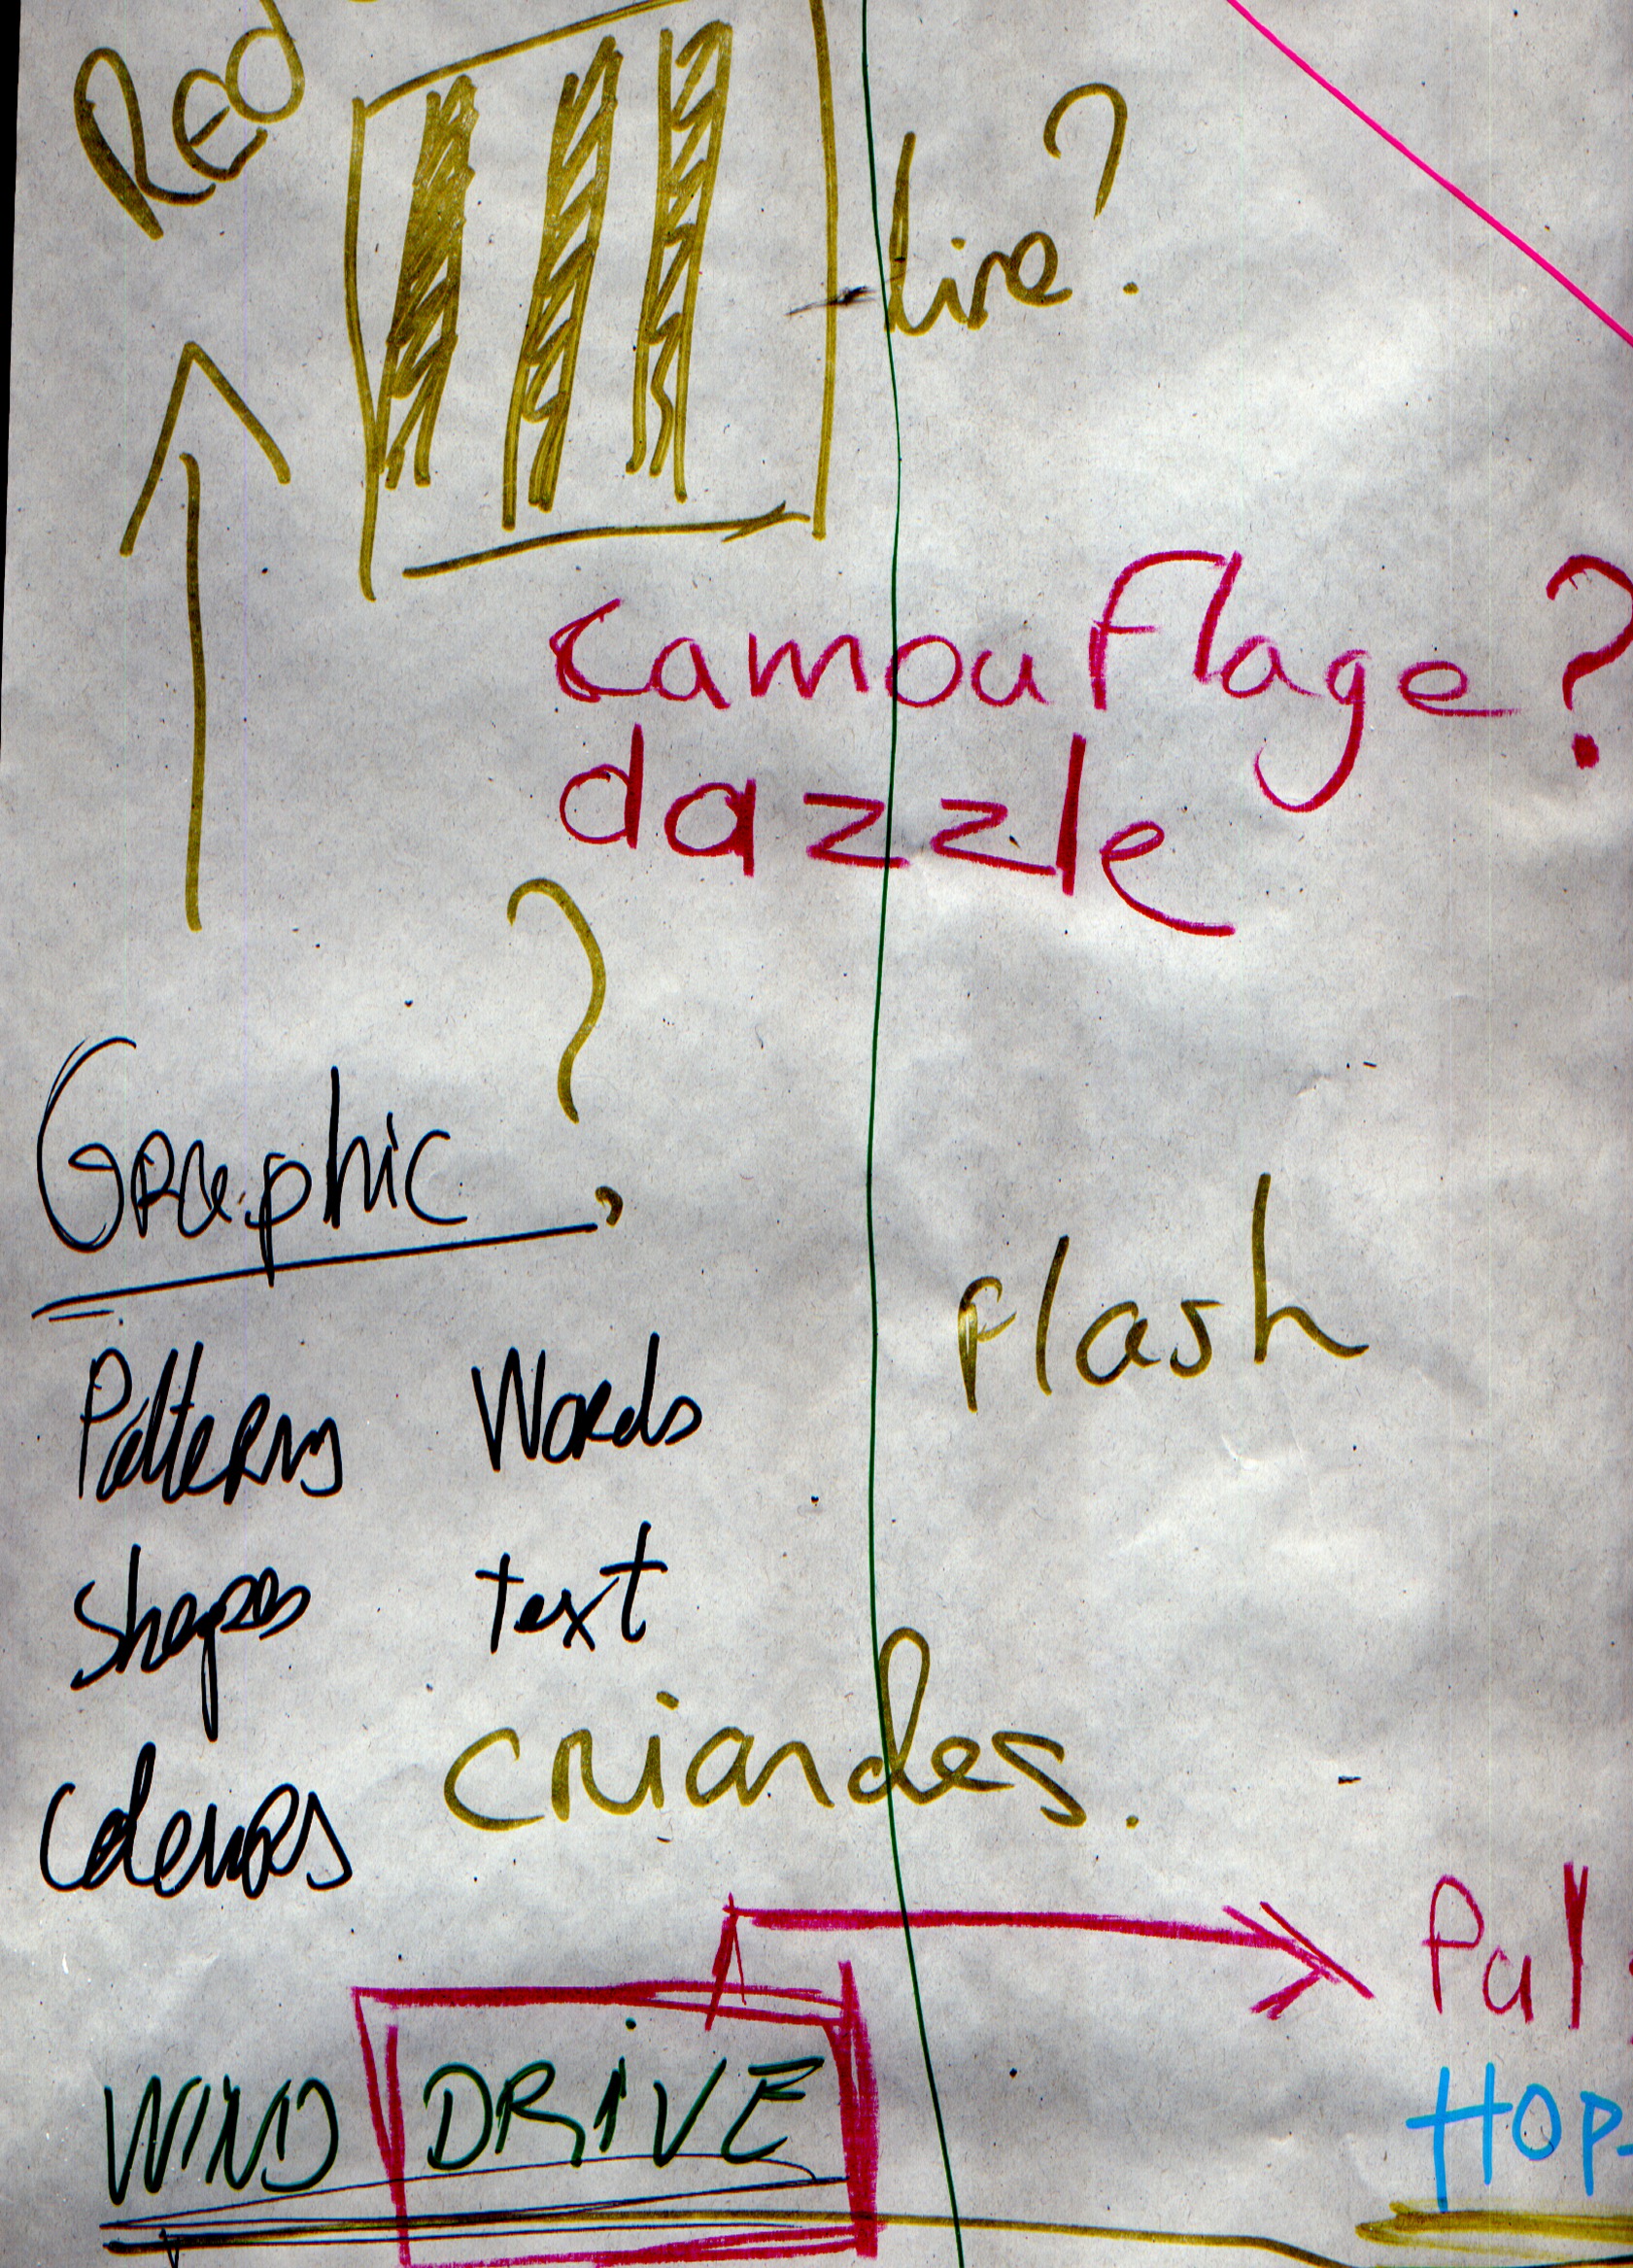 Red
line?
camouflage?
dazzle
?
Graphic
Patterns Words
Shapes text
Colours
flash
criardes.
Pul
WIND DRIVE
HOP-